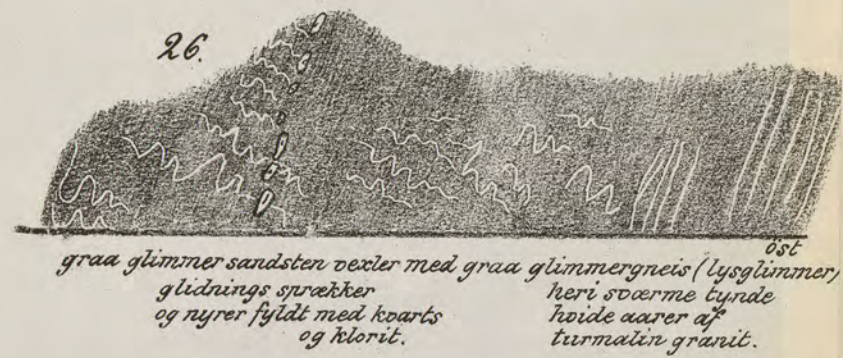 26.
öst
graa glimmer sandsten vexler med graa glimmergneis (lysglimmer)
glidnings sprækker
og nyrer fyldt med kvarts
og klorit.
heri sværme tynde
hvide aarer af
turmalin granit.